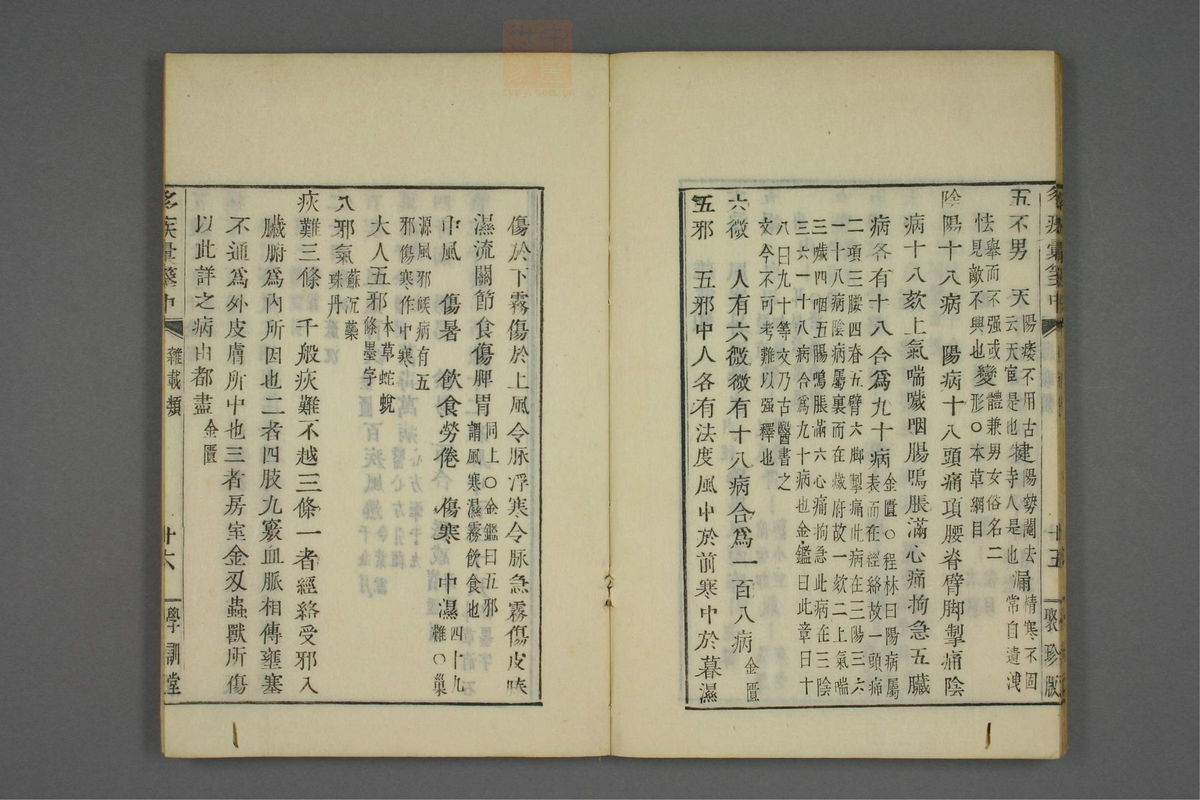 五不男　天陽痿不用古云天宦是也犍陽勢闉去寺人是也漏情寒不固常自遺洩
怯舉而不强或見敵不興也變體兼男女俗名二形○本草綱目
陰陽十八病　陽病十八頭痛項腰脊臂脚掣痛陰
病十八欬上氣喘噦咽腸鳴脹滿心痛拘急五臟
病各有十八合爲九十病金匱○程林曰陽病屬表而在經絡故一頭痛
二項三腰四脊五臂六脚掣痛此病在三陽三六一十八病陰病屬裏而在臟府故一欬二上氣喘
三噦四咽五腸鳴脹滿六心痛拘急此病在三陰三六一十八病合爲九十病也金鑑曰此章曰十
八曰九十等文乃古醫書之文今不可考難以强釋也
六微　人有六微微有十八病合爲一百八病金匱
五邪　五邪中人各有法度風中於前寒中於暮濕
多疾彙箋中
雜載類
十五
聚珍版
傷於下霧傷於上風令脉浮寒令脉急霧傷皮腠
濕流關節食傷脾胃同上○金鑑曰五邪謂風寒濕霧飮食也
中風　傷暑　飮食勞倦　傷寒　中濕四十九難○巢
源風邪候病有五邪傷寒作中寒
大人五邪本草蛇蛻條墨字
八邪氣蘇沉藥珠丹
疢難三條　千般疢難不越三條一者經絡受邪入
臟腑爲內所因也二者四肢九竅血脈相傳壅塞
不通爲外皮膚所中也三者房室金刄蟲獸所傷
以此詳之病由都盡金匱
多疾彙箋中
雜載類
十六
學訓堂